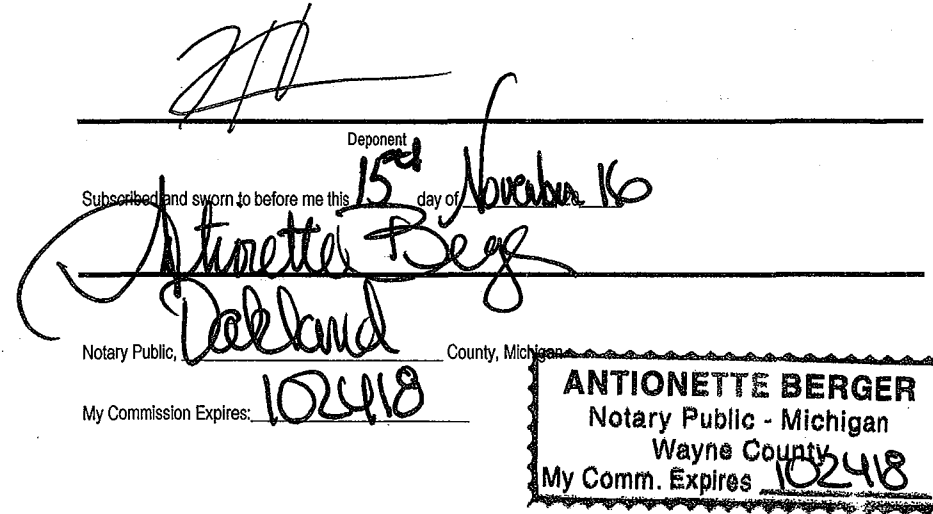 Deponent
Subscribed and sworn to before me this 15th day of November 16
Antionette Berger
Notary Public, Oakland County, Michigan
My Commission Expires: 102418
ANTIONETTE BERGER
Notary Public - Michigan
Wayne County
My Comm. Expires 102418